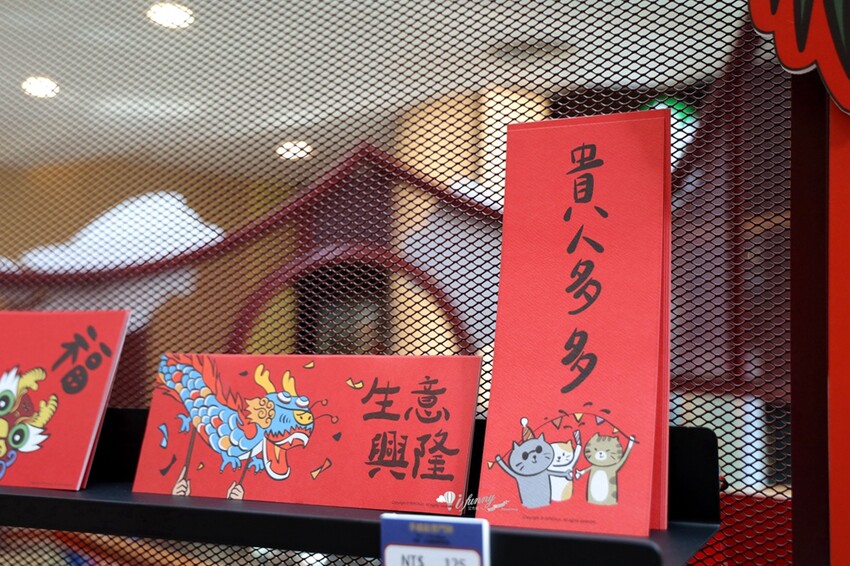 福
生意
興隆
貴人多多
ifunny
NT$ 125